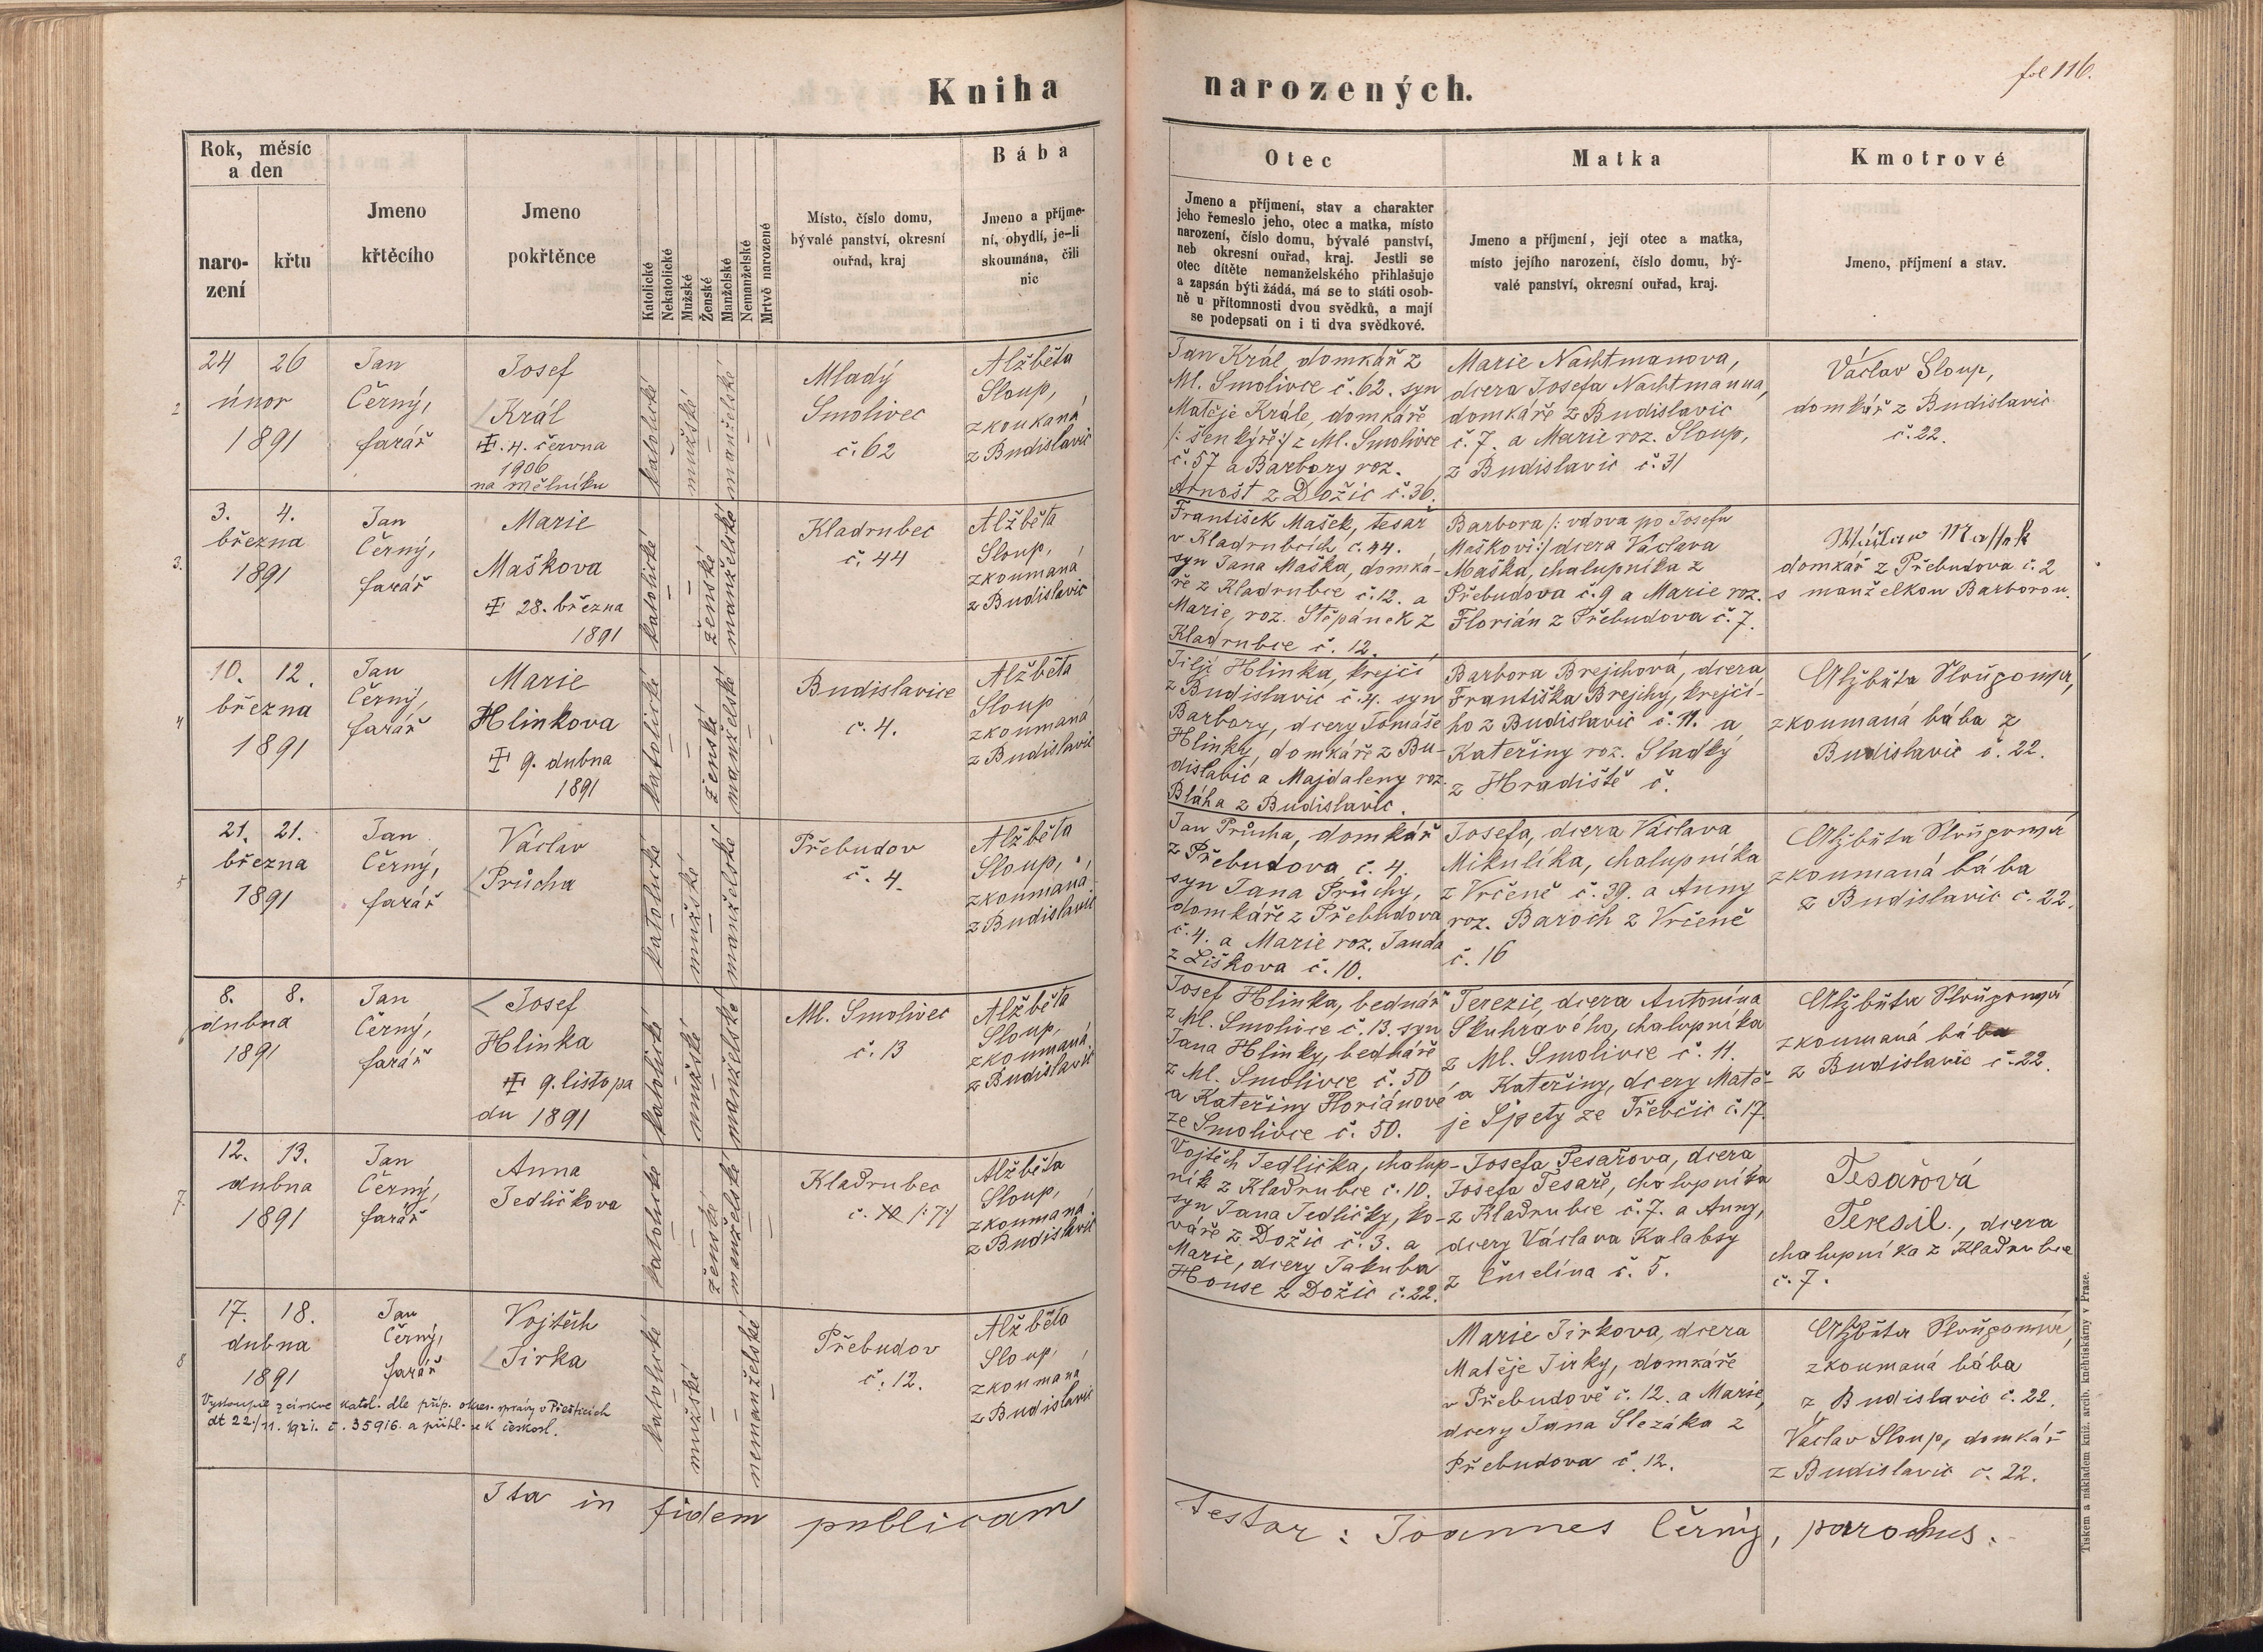 fol 116.
Kniha narozených.
Rok, měsíc
a den
naro-
zení
křtu
Jmeno
křtěcího
Jmeno
pokřtěnce
Katolické
Nekatolické
Mužské
Ženské
Manželské
Nemanželské
Mrtvě narozené
Místo, číslo domu,
bývalé panství, okresní
ouřad, kraj
Bába
Jmeno a příjme-
ní, obydlí, je-li
skoumána, čili
nic
Otec
Jmeno a příjmení, stav a charakter
jeho řemeslo jeho, otec a matka, místo
narození, číslo domu, bývalé panství,
neb okresní ouřad, kraj. Jestli se
otec dítěte nemanželského přihlašuje
a zapsán býti žádá, má se to státi osob-
ně u přítomnosti dvou svědků, a mají
se podepsati on i ti dva svědkové.
Matka
Jmeno a příjmení, její otec a matka,
místo jejího narození, číslo domu, bý-
valé panství, okresní ouřad, kraj.
Kmotrové
Jmeno, příjmení a stav.
2
24 26
únor
1891
Jan
Černý,
farář
Josef
Král
4. června
1906
na Mělníku
katolické
mužské
manželské
Mladý
Smolivec
č. 62
Alžběta
Sloup,
zkoukaná
z Budislavic
Jan Král, domkář z
Ml. Smolivce č. 62. syn
Matěje Krále, domkáře
/: šenkýře :/ z Ml. Smolivce
č. 57 a Barbory roz.
Arnošt z Dožic č. 36.
Marie Nachtmanova,
dcera Josefa Nachtmanna,
domkáře z Budislavic
č. 7. a Marie roz. Sloup,
z Budislavic č. 31
Václav Sloup,
domkář z Budislavic
č. 22.
3.
3. 4.
března
1891
Jan
Černý,
farář
Marie
Maškova
28. března
1891
katolické
ženské
manželské
Kladrubec
č. 44
Alžběta
Sloup,
zkoumaná
z Budislavic
František Mašek, tesař
v Kladrubcích č. 44.
syn Jana Maška, domká-
ře z Kladrubce č. 12. a
Marie, roz. Štěpánek z
Kladrubce č. 12.
Barbora /: vdova po Josefu
Maškovi :/ dcera Václava
Maška, chalupníka z
Přebudova č. 9 a Marie roz.
Florián z Přebudova č. 7.
domkář z Přebudova č. 2
s manželkou Barborou.
4
10. 12.
března
1891
Jan
Černý,
farář
Marie
Hlinkova
9. dubna
1891
katolické
ženské
manželské
Budislavice
č. 4.
Alžběta
Sloup
zkoumaná
z Budislavic
Jiljí Hlinka, krejčí
z Budislavic č. 4. syn
Barbory, dcery Tomáše
Hlinky, domkáře z Bu-
dislavic a Majdaleny roz.
Bláha z Budislavic.
Barbora Brejchová, dcera
Františka Brejchy, krejčí-
ho z Budislavic č. 11. a
Kateřiny roz. Sladký
z Hradiště č.
Alžběta Sloupová,
zkoumaná bába z
Budislavic č. 22.
5
21. 21.
března
1891
Jan
Černý,
farář
Václav
Průcha
katolické
mužské
manželské
Přebudov
č. 4.
Alžběta
Sloup,
zkoumaná
z Budislavic
Jan Průcha, domkář
z Přebudova č. 4.
syn Jana Průchy,
domkáře z Přebudova
č. 4. a Marie roz. Janda
z Liškova č. 10.
Josefa, dcera Václava
Mikulíka, chalupníka
z Vrčeně č. 39. a Anny
roz. Baroch z Vrčeně
č. 16
Alžběta Sloupová
zkoumaná bába
z Budislavic č. 22.
6
8. 8.
dubna
1891
Jan
Černý,
farář
Josef
Hlinka
9. listopa
du 1891
katolické
mužské
manželské
Ml. Smolivec
č. 13
Alžběta
Sloup,
zkoumaná
z Budislavic
Josef Hlinka, bednář
z Ml. Smolivce č. 13. syn
Jana Hlinky, bednáře
z Ml. Smolivce č. 50
a Kateřiny Floriánové
ze Smolivce č. 50.
Terezie, dcera Antonína
Skuhravého, chalupníka
z Ml. Smolivce č. 11.
a Kateřiny, dcery Matě-
je Špety ze Třebčic č. 17
Alžběta Sloupová
zkoumaná bába
z Budislavic č. 22.
7.
12. 13.
dubna
1891
Jan
Černý,
farář
Anna
Jedličkova
katolické
ženské
manželské
Kladrubec
č. 10 /: 7 :/
Alžběta
Sloup,
zkoumaná
z Budislavic
Vojtěch Jedlička, chalup-
ník z Kladrubce č. 10.
syn Jana Jedličky, ko-
váře z Dožic č. 3. a
Marie, dcery Jakuba
House z Dožic č. 22.
Josefa Tesařova, dcera
Josefa Tesaře, chalupníka
z Kladrubce č. 7. a Anny,
dcery Václava Kalabsy
z Čmelína č. 5.
Tesařová
Teresil., dcera
chalupníka z Kladrubce
č. 7.
8
17. 18.
dubna
1891
Jan
Černý,
farář
Vojtěch
Jirka
katolické
mužské
nemanželské
Přebudov
č. 12.
Alžběta
Sloup,
zkoumaná
z Budislavic
Marie Jirkova, dcera
Matěje Jirky, domkáře
v Přebudově č. 12. a Marie,
dcery Jana Slezáka z
Přebudova č. 12.
Alžběta Sloupová,
zkoumaná bába
z Budislavic č. 22.
Václav Sloup, domkář
z Budislavic č. 22.
Vystoupil z církve katol. dle příp. okres. správy v Přešticích
dt 22./11. 1921. č. 35916. a přihl. se k českosl.
Ita in fidem publicam testor: Joannes Černý, parochus.
Tiskem a nákladem kníž. arcib. knihtiskárny v Praze.